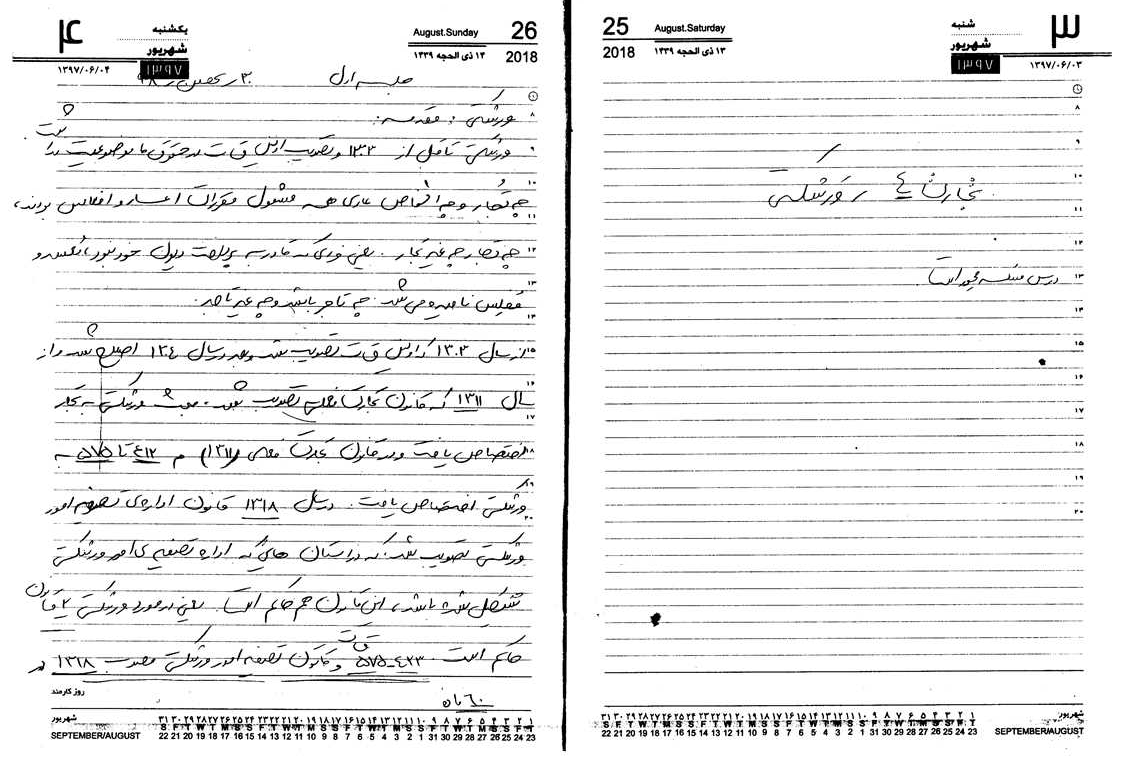 ۳
شنبه
شهریور
۱۳۹۷
۱۳۹۷/۰۶/۰۳
August.Saturday
۱۳ ذی الحجه ۱۴۳۹
25
2018
۸
۹
۱۰
تجارت ٤ ورشکستگی
۱۱
۱۲
۱۳
۱۴
۱۵
۱۶
۱۷
۱۸
۱۹
۲۰
شهریور
۳۱ ۳۰ ۲۹ ۲۸ ۲۷ ۲۶ ۲۵ ۲۴ ۲۳ ۲۲ ۲۱ ۲۰ ۱۹ ۱۸ ۱۷ ۱۶ ۱۵ ۱۴ ۱۳ ۱۲ ۱۱ ۱۰ ۹ ۸ ۷ ۶ ۵ ۴ ۳ ۲ ۱
22 21 20 19 18 17 16 15 14 13 12 11 10 9 8 7 6 5 4 3 2 1 31 30 29 28 27 26 25 24 23
SEPTEMBER/AUGUST
۴
یکشنبه
شهریور
۱۳۹۷
۱۳۹۷/۰۶/۰۴
August.Sunday
۱۴ ذی الحجه ۱۴۳۹
26
2018
جلسه اول
۸ ورشکستگی : مقدمه :
۹ ورشکستگی تا قبل از ۱۳۰۳ و تصویب اولین ق ت در حقوق ما موضوعیت نداشت
۱۰ چه تجار و چه اشخاص عادی همه مشمول مقررات اعسار و افلاس بودند،
۱۱
۱۲ چه تجار چه غیر تجار. یعنی فردی که قادر به پرداخت دیون خود نبود،
۱۳ مفلس نامیده می شد. چه تاجر باشد و چه غیر تاجر.
۱۴
۱۵ از سال ۱۳۰۳ که اولین ق ت تصویب شد و بعد در سال ۱۳۰٤ اصلاح شد و از
۱۶ سال ۱۳۱۱ که قانون تجارت فعلی تصویب شد. مبحث ورشکستگی به تجار
۱۷
۱۸ اختصاص یافت و در قانون تجارت فعلی (۱۳۱۱) م ٤۱۲ تا ۵۷۵ به
۱۹
ورشکستگی اختصاص یافت. در سال ۱۳۱۸ قانون اداره ی تصفیه امور
۲۰
ورشکستگی تصویب شد که در استان هایی که اداره تصفیه ی امور ورشکستگی
تشکیل شده باشد، این قانون هم حاکم است. یعنی در مورد ورشکستگی ۲ قانون
حاکم است. ق ت ۵۷۵-٤۱۲ و قانون تصفیه امور ورشکستگی مصوب ۱۳۱۸
در ٦۰ ماده
روز کارمند
شهریور
۳۱ ۳۰ ۲۹ ۲۸ ۲۷ ۲۶ ۲۵ ۲۴ ۲۳ ۲۲ ۲۱ ۲۰ ۱۹ ۱۸ ۱۷ ۱۶ ۱۵ ۱۴ ۱۳ ۱۲ ۱۱ ۱۰ ۹ ۸ ۷ ۶ ۵ ۴ ۳ ۲ ۱
22 21 20 19 18 17 16 15 14 13 12 11 10 9 8 7 6 5 4 3 2 1 31 30 29 28 27 26 25 24 23
SEPTEMBER/AUGUST